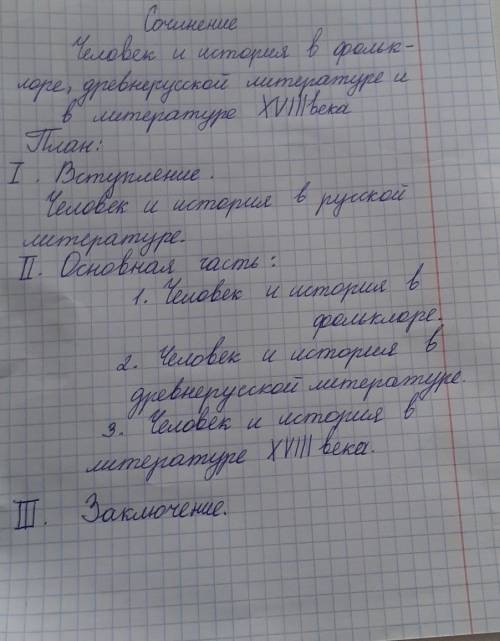 Сочинение
Человек и история в фольк-
лоре, древнерусской литературе и
в литературе XVIII века
План:
I. Вступление.
Человек и история в русской
литературе.
II. Основная часть:
1. Человек и история в
фольклоре.
2. Человек и история в
древнерусской литературе.
3. Человек и история в
литературе XVIII века.
III. Заключение.